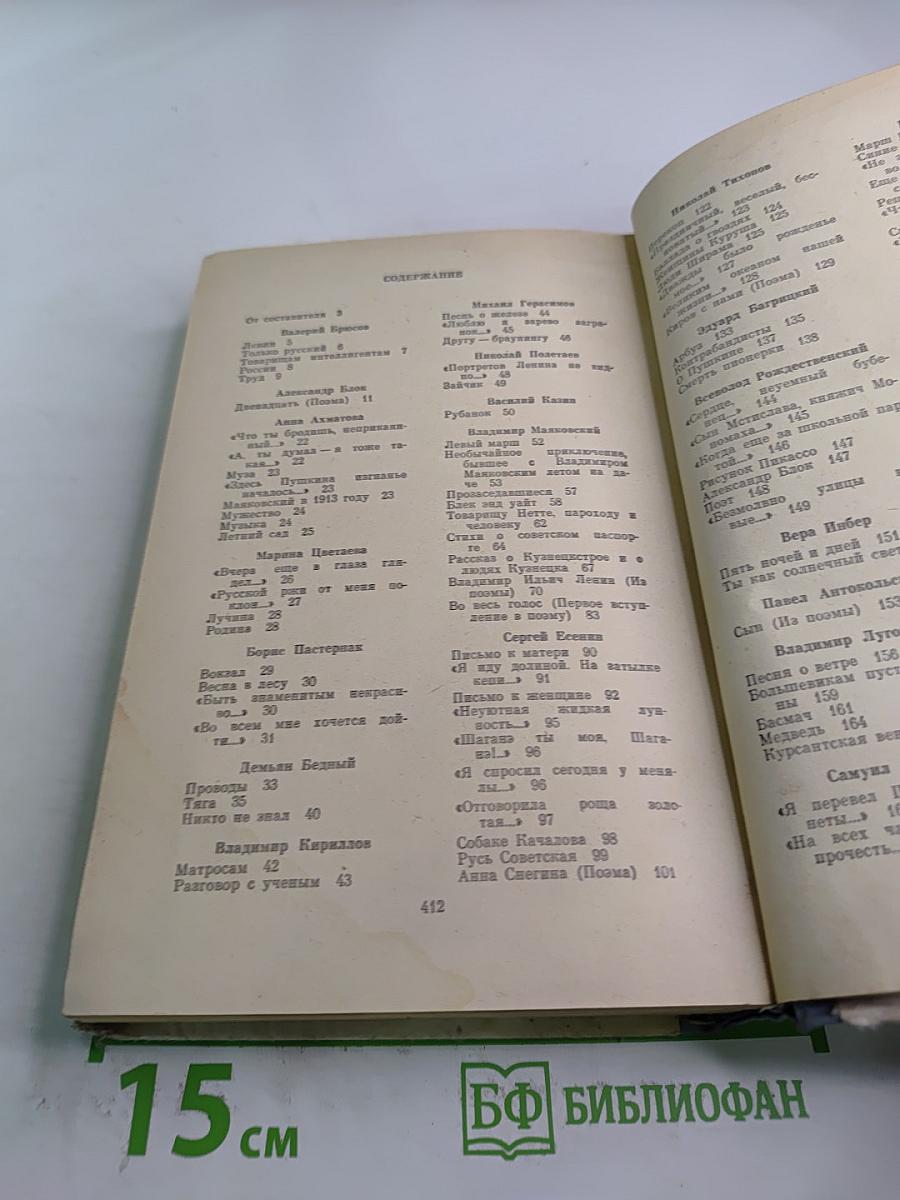 СОДЕРЖАНИЕ
От составителя 3
Валерий Брюсов
Ленин 5
Только русский 6
Товарищам интеллигентам 7
России 8
Труд 9
Александр Блок
Двенадцать (Поэма) 11
Анна Ахматова
«Что ты бродишь, неприкаян-
ный...» 22
«А, ты думал — я тоже та-
кая...» 22
Муза 23
«Здесь Пушкина изгнанье
началось...» 23
Маяковский в 1913 году 23
Мужество 24
Музыка 24
Летний сад 25
Марина Цветаева
«Вчера еще в глаза гля-
дел...» 26
«Русской ржи от меня по-
клон...» 27
Лучина 28
Родина 28
Борис Пастернак
Вокзал 29
Весна в лесу 30
«Быть знаменитым некраси-
во...» 30
«Во всем мне хочется дой-
ти...» 31
Демьян Бедный
Проводы 33
Тяга 35
Никто не знал 40
Владимир Кириллов
Матросам 42
Разговор с ученым 43
Михаил Герасимов
Песнь о железе 44
«Люблю я зарево вагра-
нок...» 45
Другу — браунингу 46
Николай Полетаев
«Портретов Ленина не вид-
но...» 48
Зайчик 49
Василий Казин
Рубанок 50
Владимир Маяковский
Левый марш 52
Необычайное приключение,
бывшее с Владимиром
Маяковским летом на да-
че 53
Прозаседавшиеся 57
Блек энд уайт 58
Товарищу Нетте, пароходу и
человеку 62
Стихи о советском паспор-
те 64
Рассказ о Кузнецкстрое и о
людях Кузнецка 67
Владимир Ильич Ленин (Из
поэмы) 70
Во весь голос (Первое вступ-
ление в поэму) 83
Сергей Есенин
Письмо к матери 90
«Я иду долиной. На затылке
кепи...» 91
Письмо к женщине 92
«Неуютная жидкая лун-
ность...» 95
«Шаганэ ты моя, Шага-
нэ!..» 96
«Я спросил сегодня у меня-
лы...» 96
«Отговорила роща золо-
тая...» 97
Собаке Качалова 98
Русь Советская 99
Анна Снегина (Поэма) 101
412
Николай Тихонов
Перекоп 122
«Праздничный, веселый, бес-
новатый...» 123
Баллада о гвоздях 124
Женщины Куруша 125
Люди Ширама 125
«Дважды было рожденье
мое...» 127
«Великим океаном нашей
жизни...» 128
Киров с нами (Поэма) 129
Эдуард Багрицкий
Арбуз 133
Контрабандисты 135
О Пушкине 137
Смерть пионерки 138
Всеволод Рождественский
«Сердце, неуемный бубе-
нец...» 144
«Сын Мстислава, княжич Мо-
номаха...» 145
«Когда еще за школьной пар
той...» 146
Рисунок Пикассо 147
Александр Блок 147
Поэт 148
«Безмолвно улицы
вые...» 149
Вера Инбер
Пять ночей и дней 151
Ты как солнечный свет
Павел Антокольс
Сын (Из поэмы) 153
Владимир Луго
Песня о ветре 156
Большевикам пуст
ны 159
Басмач 161
Медведь 164
Курсантская вен
Самуил
«Я перевел
неты...» 16
«На всех ча
прочесть...
Марш
Синие
«Не
во
Еще
с
Реш
«Ч
15 см
БФ БИБЛИОФАН